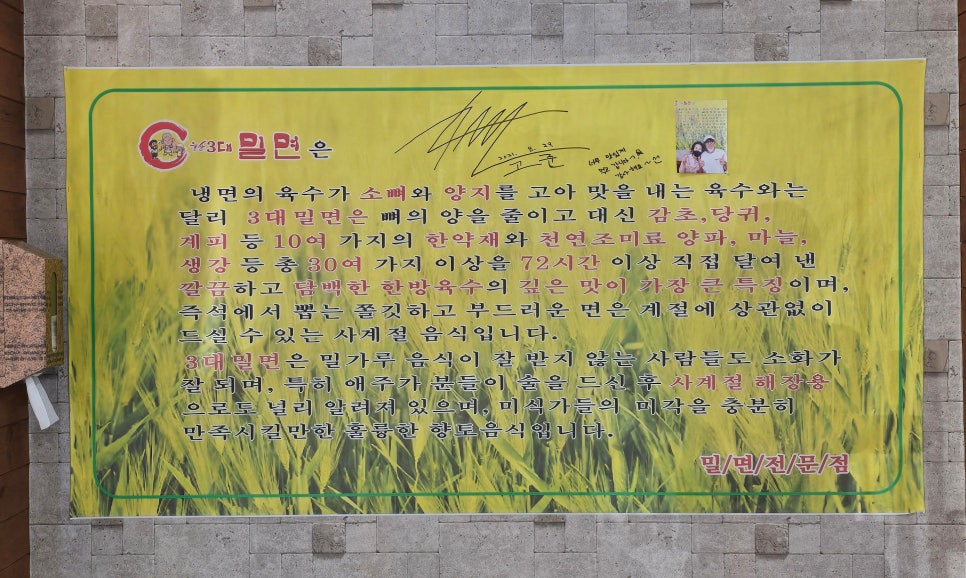 3대 밀면은
2021. 8. 29
냉면의 육수가 소뼈와 양지를 고아 맛을 내는 육수와는
달리 3대밀면은 뼈의 양을 줄이고 대신 감초,당귀,
계피 등 10여 가지의 한약재와 천연조미료 양파, 마늘,
생강 등 총 30여 가지 이상을 72시간 이상 직접 달여 낸
깔끔하고 담백한 한방육수의 깊은 맛이 가장 큰 특징이며,
즉석에서 뽑는 쫄깃하고 부드러운 면은 계절에 상관없이
드실 수 있는 사계절 음식입니다.
3대밀면은 밀가루 음식이 잘 받지 않는 사람들도 소화가
잘 되며, 특히 애주가 분들이 술을 드신 후 사계절 해장용
으로도 널리 알려져 있으며, 미식가들의 미각을 충분히
만족시킬만한 훌륭한 향토음식입니다.
밀/면/전/문/점